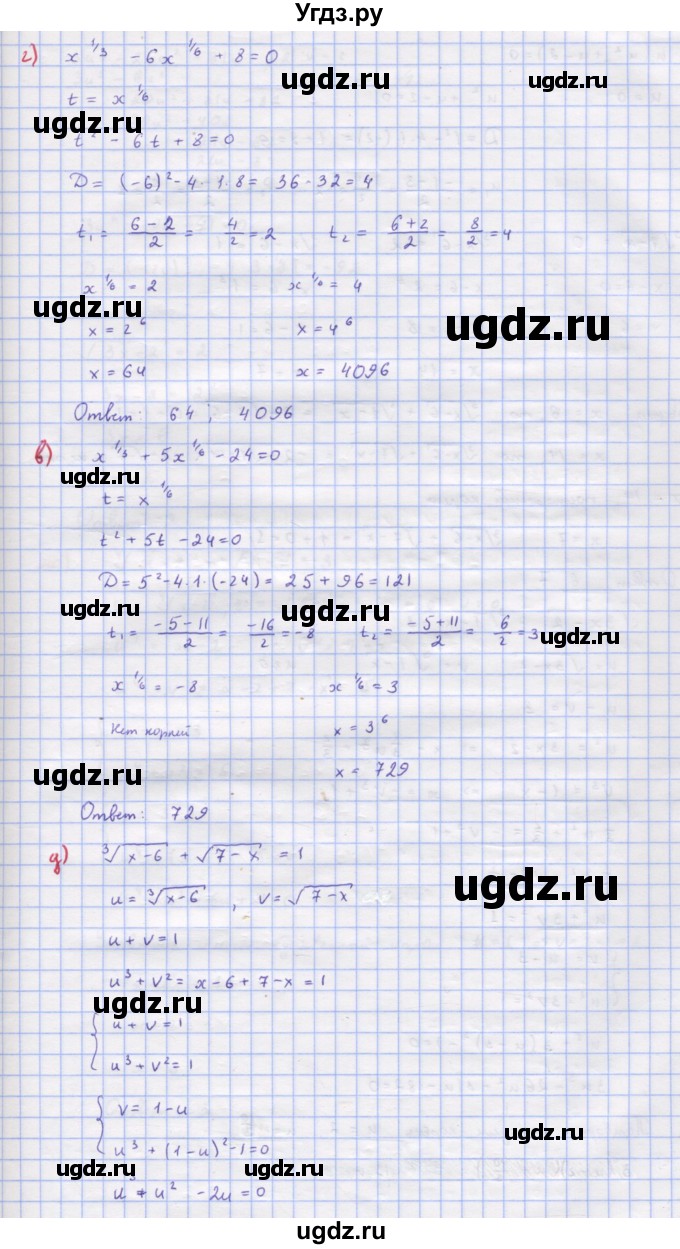 Угдз.ру
г) x^1/3 - 6x^1/6 + 8 = 0
ugdz.ru
ugdz.ru
t = x^1/6
ugdz.ru
t² - 6t + 8 = 0
D = (-6)² - 4 · 1 · 8 = 36 - 32 = 4
t₁ = (6 - 2)/2 = 4/2 = 2 t₂ = (6 + 2)/2 = 8/2 = 4
x^1/6 = 2 x^1/6 = 4
ugdz.ru
ugdz.ru
x = 2⁶ x = 4⁶
x = 64 x = 4096
Ответ: 64 ; 4096
в) x^1/3 + 5x^1/6 - 24 = 0
ugdz.ru
ugdz.ru
t = x^1/6
t² + 5t - 24 = 0
D = 5² - 4 · 1 · (-24) = 25 + 96 = 121
ugdz.ru
ugdz.ru
t₁ = (-5 - 11)/2 = -16/2 = -8 t₂ = (-5 + 11)/2 = 6/2 = 3
ugdz.ru
x^1/6 = -8 x^1/6 = 3
Нет корней x = 3⁶
ugdz.ru
x = 729
Ответ: 729
ugdz.ru
д) ∛(x-6) + √(7-x) = 1
ugdz.ru
u = ∛(x-6) , v = √(7-x)
u + v = 1
u³ + v² = x - 6 + 7 - x = 1
ugdz.ru
ugdz.ru
{ u + v = 1
u³ + v² = 1
{ v = 1 - u
u³ + (1 - u)² - 1 = 0
ugdz.ru
ugdz.ru
ugdz.ru
u³ + u² - 2u = 0
ugdz.ru